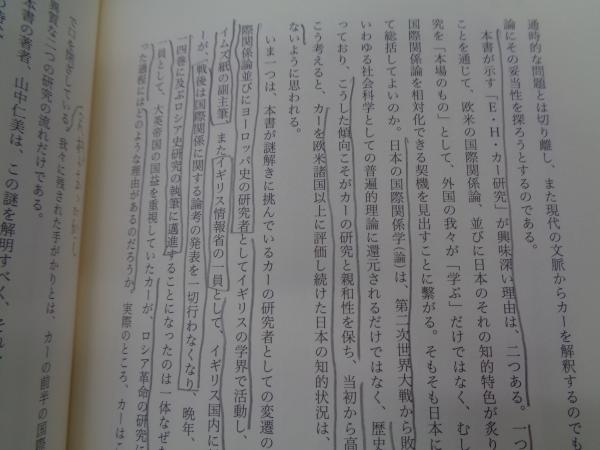 通時的な問題とは切り離し、また現代の文脈からカーを解釈するのでも
論にその妥当性を探ろうとするのである。
本書が示す「E・H・カー研究」が興味深い理由は、二つある。一つ
ことを通じて、欧米の国際関係論、並びに日本のそれの知的特色が炙り
究を「本場のもの」として、外国の我々が「学ぶ」だけではなく、むし
国際関係論を相対化できる契機を見出すことに繋がる。そもそも日本に
て総括してよいのか。日本の国際関係学（論）は、第二次世界大戦から敗
いわゆる社会科学としての普遍的理論に還元されるだけではなく、歴史
っており、こうした傾向こそがカーの研究と親和性を保ち、当初から高
こう考えると、カーを欧米諸国以上に評価し続けた日本の知的状況は、
ないように思われる。
いま一つは、本書が謎解きに挑んでいるカーの研究者としての変遷の
際関係論並びにヨーロッパ史の研究者としてイギリスの学界で活動し、
イムズ』紙の副主筆、またイギリス情報省の一員として、イギリス国内に
ーが、「戦後は国際関係に関する論考の発表を一切行わなくなり、晩年、
一四巻に及ぶロシア史研究の執筆に邁進することになったのは一体なぜな
員として、大英帝国の国益を重視していたカーが、ロシア革命の研究に
った過程にはどのような理由があるのだろうか。実際のところ、カーはこ
で口を閉ざしている。我々に残された手がかりとは、カーの前半の国際
異質な二つの研究の流れだけである。
本書の著者、山中仁美は、この謎を解明すべく、それ